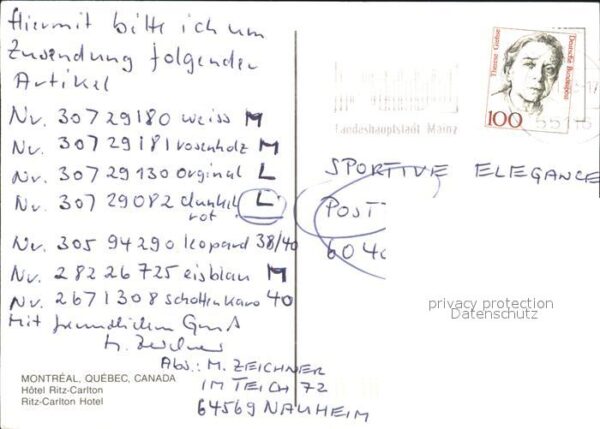 Hiermit bitte ich um
Zusendung folgender
Artikel
Nr. 307 29180 weiss M
Nr. 307 29181 rosenholz M
Nr. 307 29130 Orginal L
Nr. 307 29082 dunkel L
rot
Nr. 305 94290 leopard 38/40
Nr. 282 26725 eisblau M
Nr. 267 1308 Schottenkaro 40
Mit freundlichem Gruß
M. Zeichner
Abs.: M. ZEICHNER
IM TEICH 72
64569 NAUHEIM
MONTRÉAL, QUÉBEC, CANADA
Hôtel Ritz-Carlton
Ritz-Carlton Hotel
Landeshauptstadt Mainz
Therese Giehse
Deutsche Bundespost
100
SPORTIVE ELEGANCE
POST
604
privacy protection
Datenschutz